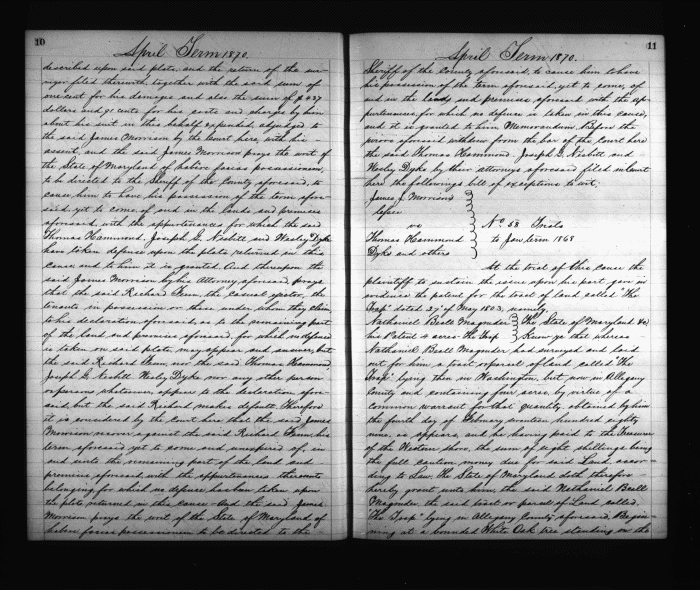 10
April Term 1870.
described upon said plats, and the return of the sur-
veyor filed therewith, together with the said sum of
one cent for his damages and also the sum of $237
dollars and 91 cents for his costs and charges by him
about his suit in this behalf expended adjudged to
the said James Morrison by the Court here, with his
assent, and the said James Morrison prays the writ of
the State of Maryland of habere facias possessionem,
to be directed to the Sheriff of the County aforesaid, to
cause him to have his possession of the term afore-
said yet to come, of and in the lands and premises
aforesaid, with the appurtenances for which the said
Thomas Hammond, Joseph G. Nisbitt and Wesley Dyke
have taken defence upon the plats returned in this
cause and to him it is granted. And thereupon the
said James Morrison by his Attorney aforesaid prays
that the said Richard Fenn, the casual ejector, the
tenants in possession or those under whom they claim,
to his declaration aforesaid, as to the remaining part
of the land and premises aforesaid, for which no defence
is taken on said plats, may appear and answer, but
the said Richard Fenn, nor the said Thomas Hammond,
Joseph G. Nisbitt Wesley Dyke nor any other person
or persons whatsoever appear to the declaration afore-
said, but the said Richard makes default. Therefore
it is considered by the Court here that the said James
Morrison recover against the said Richard Fenn, his
term aforesaid yet to come and unexpired of, in
and unto the remaining part of the land and
premises aforesaid with the appurtenances thereunto
belonging, for which no defence has been taken upon
the plats returned in this cause. And the said James
Morrison prays the writ of the State of Maryland of
habere facias possessionem to be directed to the
11
April Term 1870.
Sheriff of the County aforesaid, to cause him to have
his possession of the term aforesaid, yet to come, of
and in the lands and premises aforesaid with the ap-
purtenances, for which no defence is taken in this cause,
and it is granted to him. Memorandum. Before the
jurors aforesaid withdrew from the bar of the Court here
the said Thomas Hammond, Joseph G. Nisbitt and
Wesley Dyke by their attorneys aforesaid filed in Court
here the following bill of exceptions to wit.
James J. Morrison
lessee
vs
Thomas Hammond
Dyke and others
No. 58 Trials
to Jan term 1868
At the trial of this cause the
plaintiff to sustain the issue upon his part gave in
evidence the patent for the tract of land called "The
Trap" dated 27th of May 1803, namely.
Nathaniel Beall Magruder
his Patent 4 acres The Trap
The State of Maryland &c
Know ye that whereas
Nathaniel Beall Magruder had surveyed and laid
out for him a tract or parcel of land called "The
Trap" lying then in Washington, but now in Allegany
County and containing four acres by virtue of a
common warrant for that quantity obtained by him
the fourth day of February seventeen hundred eighty
nine, as appears, and he having paid to the Treasurer
of the Western shore, the sum of eight shillings being
the full caution money due for said Land accor-
ding to Law. The State of Maryland doth therefore
hereby grant unto him, the said Nathaniel Beall
Magruder the said tract or parcel of Land called
"The Trap" lying in Allegany County aforesaid, Begin-
ning at a bounded White Oak tree standing on the